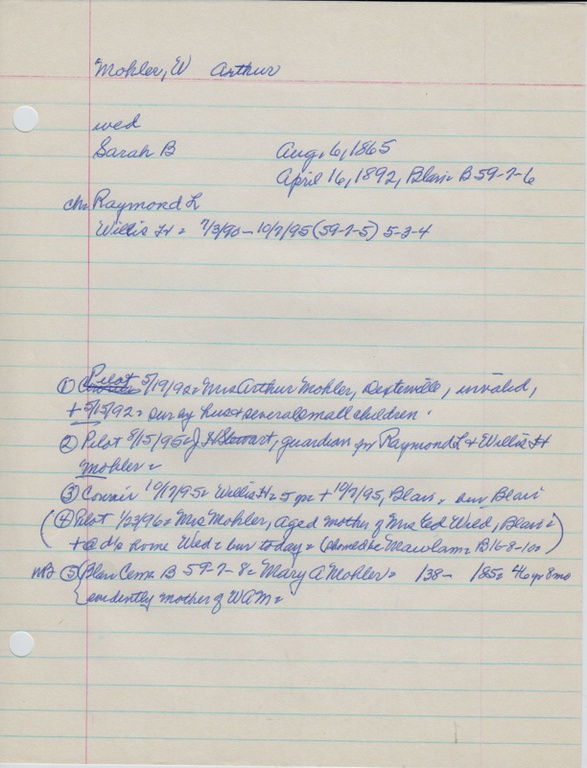 Mohler, W Arthur
wed
Sarah B Aug. 6, 1865
April 16, 1892, Blair B 59-7-6
ch. Raymond L
Willis H = 7/3/90 - 10/7/95 (59-7-5) 5-3-4
① Pilot 5/19/92 = Mrs Arthur Mohler, Dexterville, invalid,
+ 5/15/92 = surv by hus + several small children.
② Pilot 8/15/95 = J H Stewart, guardian for Raymond L + Willis H
Mohler =
③ Courier 10/17/95 = Willis H = 5 yr + 10/7/95, Blair, bur Blair
(④ Pilot 1/23/96 = Mrs Mohler, aged mother of Mrs Ed Wild, Blair =)
+ @ d's home Wed = bur today = (should be B 16-8-10)
NB ⑤ Blair Cem = B 59-7-8 = Mary A Mohler = 138- 185= 46 yr 8 mo
evidently mother of WAM =